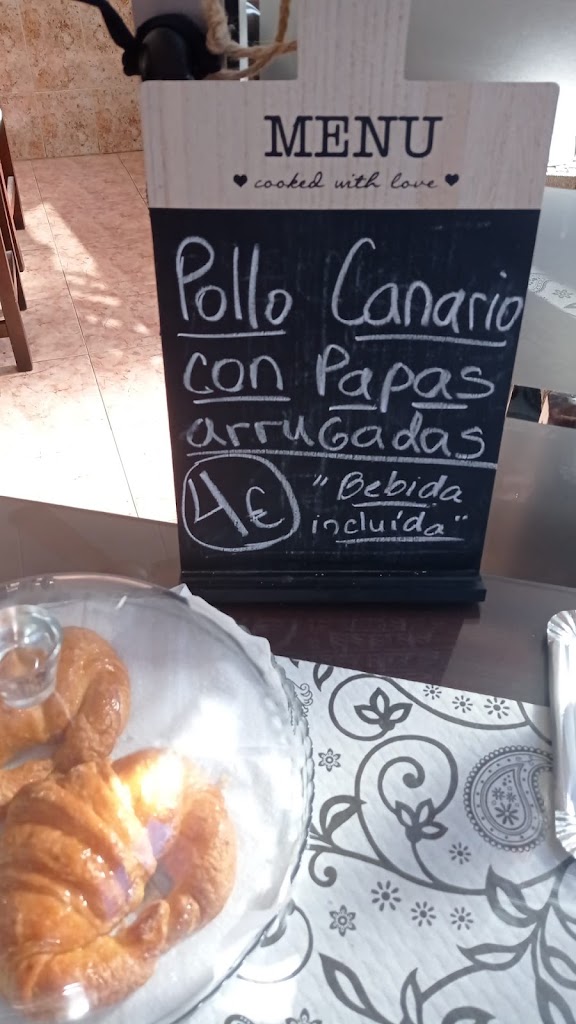 MENU
♥ cooked with love ♥
Pollo Canario
con Papas
arruGadas
4€ "Bebida
incluída"